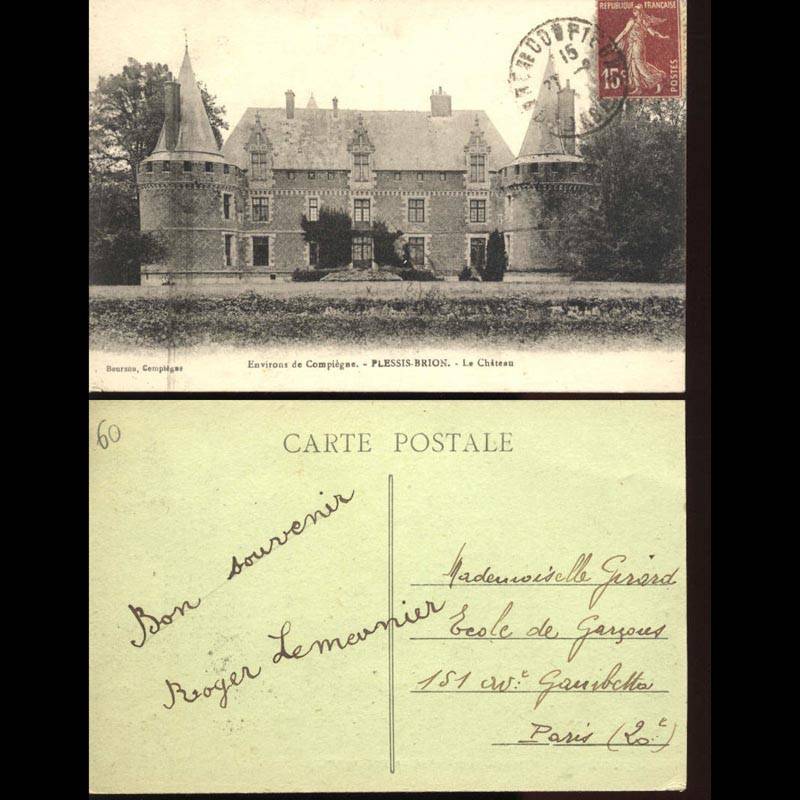 REPUBLIQUE FRANÇAISE
15c
POSTES
15
Environs de Compiègne. - PLESSIS-BRION. - Le Château
60
CARTE POSTALE
Bon souvenir
Roger Lemeunier
Mademoiselle Girard
Ecole de Garçons
151 av.e Gambetta
Paris (20.e)